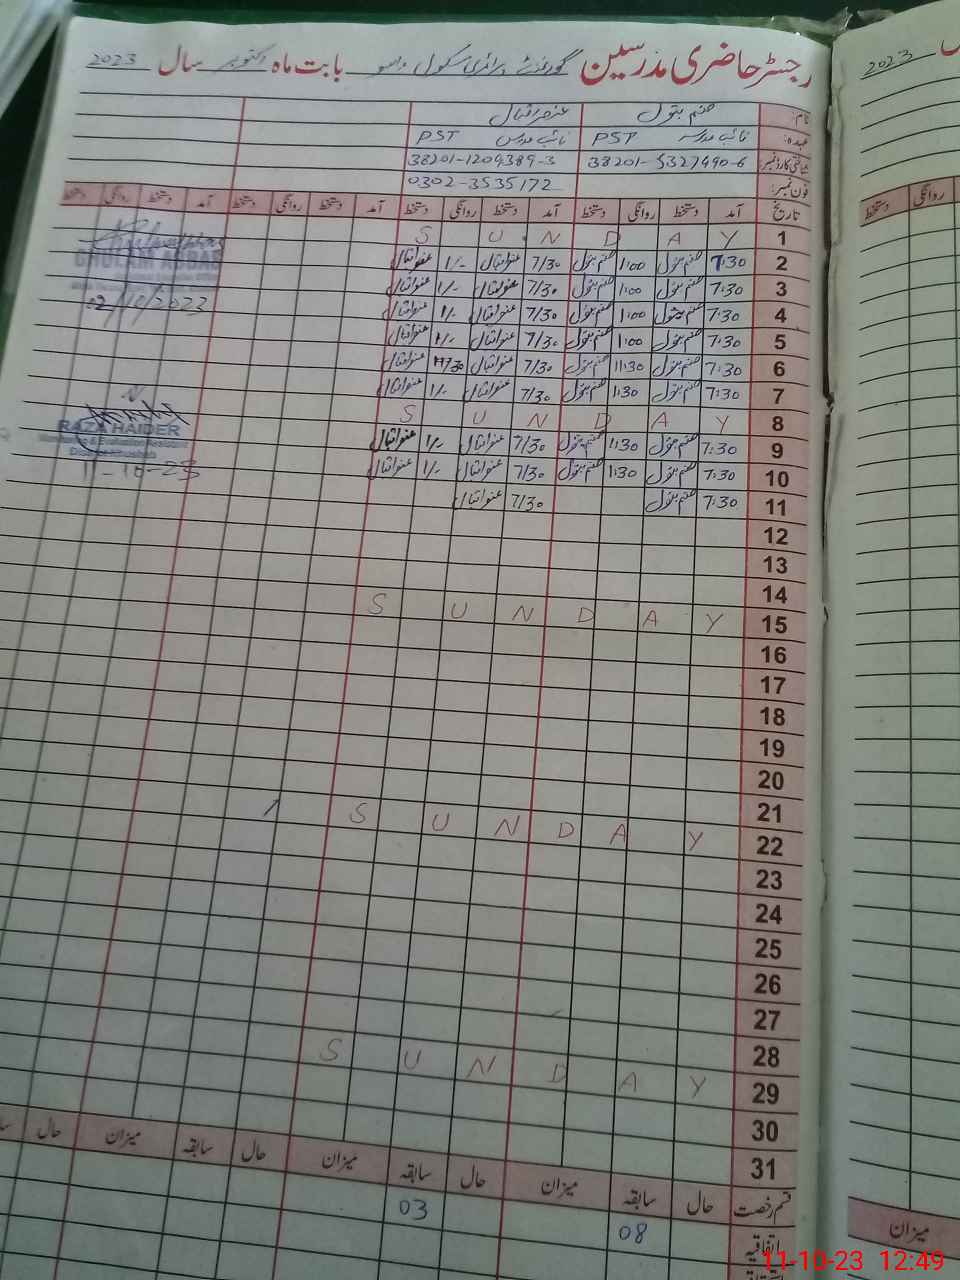 رجسٹر حاضری مدرسین گورنمنٹ پرائمری سکول بابت ماہ اکتوبر 2023 سال
نام: صنم بتول عنصر اقبال
عہدہ: نائب مدرسہ PST نائب مدرس PST
شناختی کارڈ نمبر: 38201-5327490-6 38201-1204389-3
فون نمبر: 0302-3535172
تاریخ آمد دستخط روانگی دستخط آمد دستخط روانگی دستخط آمد دستخط روانگی دستخط آمد دستخط روانگی دستخط
1 S U N D A Y
2 7:30 صنم بتول 1:00 صنم بتول 7/30 عنصر اقبال 1/- عنصر اقبال
GHULAM ABBAS
3 7:30 صنم بتول 1:00 صنم بتول 7/30 عنصر اقبال 1/- عنصر اقبال
4 7:30 صنم بتول 1:00 صنم بتول 7/30 عنصر اقبال 1/- عنصر اقبال
5 7:30 صنم بتول 1:00 صنم بتول 7/30 عنصر اقبال 1/- عنصر اقبال
6 7:30 صنم بتول 11:30 صنم بتول 7/30 عنصر اقبال 11/30 عنصر اقبال
7 7:30 صنم بتول 1:30 صنم بتول 7/30 عنصر اقبال 1/- عنصر اقبال
8 S U N D A Y
RAZA HAIDER
Monitoring & Evaluation Assistant
District Khushab
11-10-23
9 7:30 صنم بتول 1:30 صنم بتول 7/30 عنصر اقبال 1/- عنصر اقبال
10 7:30 صنم بتول 1:30 صنم بتول 7/30 عنصر اقبال 1/- عنصر اقبال
11 7:30 صنم بتول 7/30 عنصر اقبال
12
13
14
15 S U N D A Y
16
17
18
19
20
21
22 S U N D A Y
23
24
25
26
27
28
29 S U N D A Y
30
31
قسم رخصت حال سابقہ میزان حال سابقہ میزان حال سابقہ میزان حال
اتفاقیہ 08 03
2023
دستخط روانگی
میزان
11-10-23 12:49